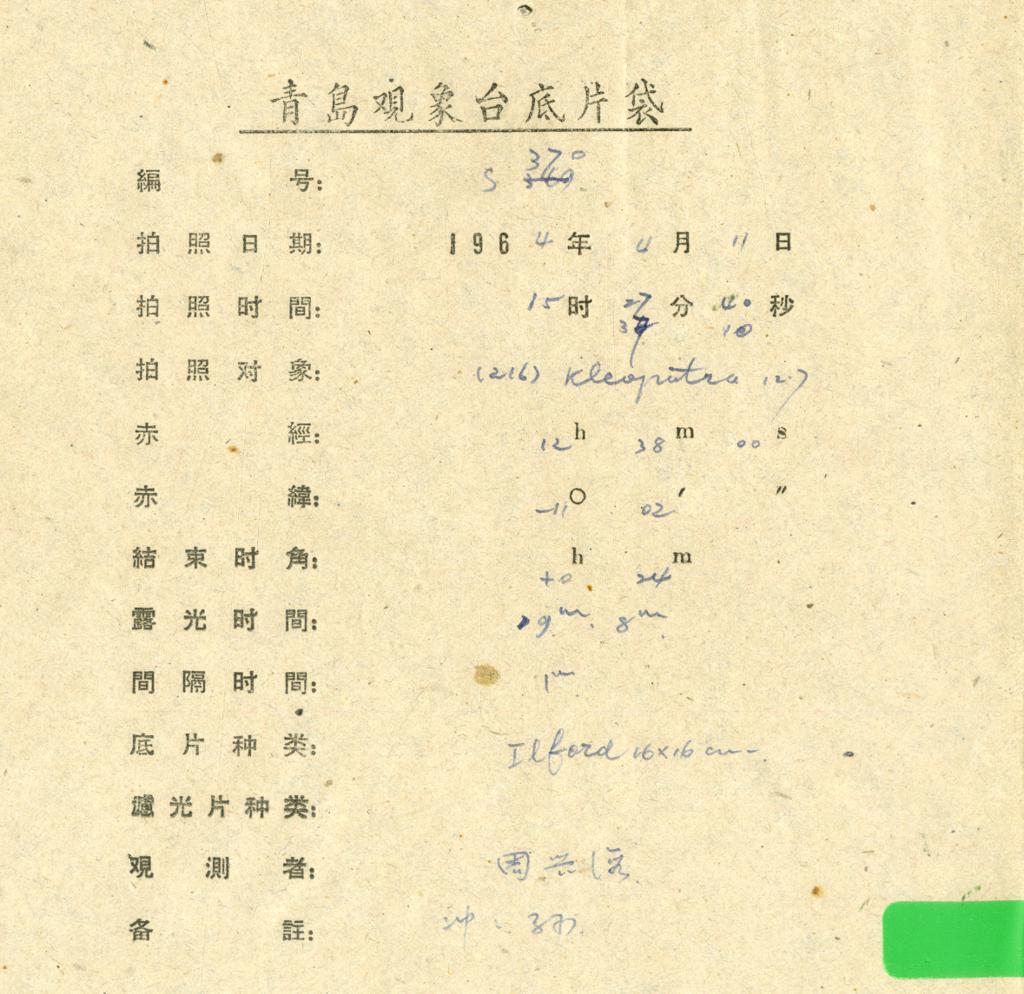 青島观象台底片袋
編号: S 370
拍照日期: 1964年4月11日
拍照时間: 15时27分40秒
37 10
拍照对象: (216) Kleopatra 12.7
赤經: 12h 38m 00s
赤緯: -11° 02′ ″
結束时角: +0h 24m
露光时間: 9m. 8m
間隔时間: 1m
底片种类: Ilford 16×16 cm
濾光片种类:
观測者: 周兴
备註: 冲